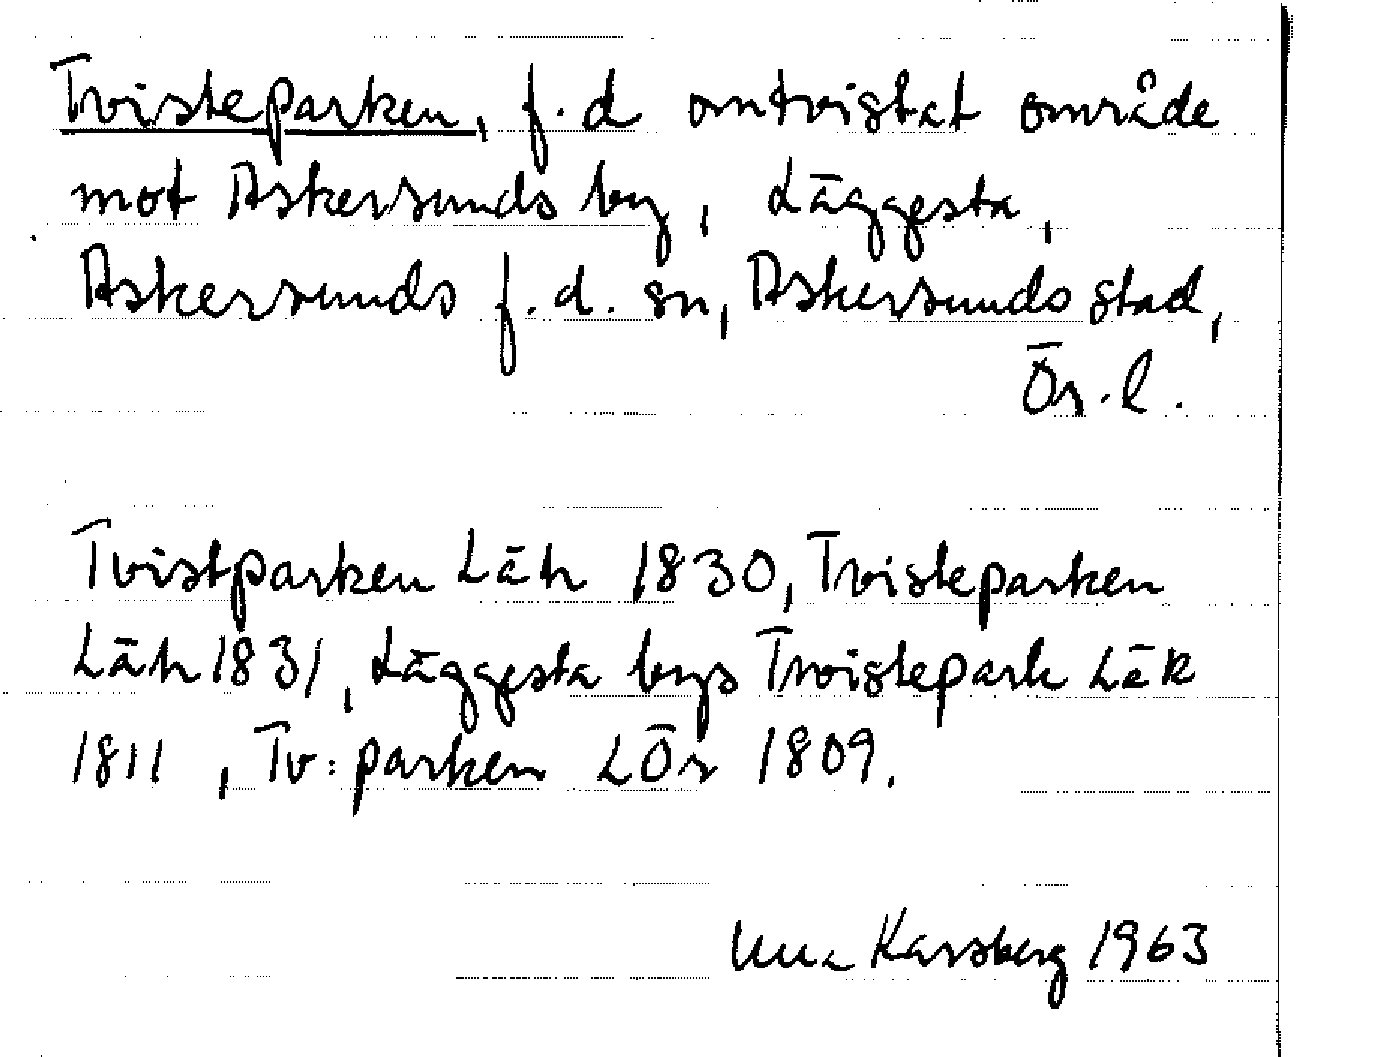 Tvisteparken, f.d omtvistat område
mot Askersunds by, Läggesta,
Askersunds f.d. sn, Askersunds stad,
Ör.l.
Tvistparken Läh 1830, Tvisteparken
Läh 1831, Läggesta bys Tvistepark Läk
1811, Tv:parken LÖr 1809.
Karsberg 1963